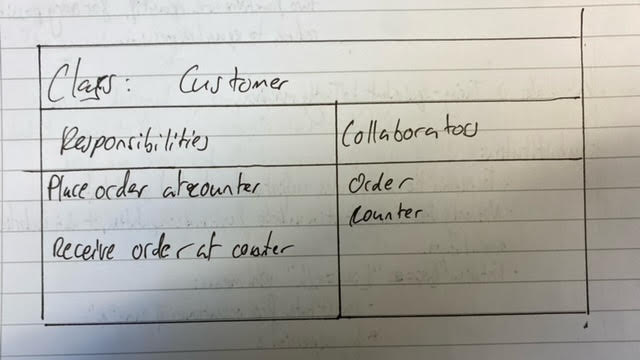 Class: Customer
Responsibilities Collaborators
Place order at counter Order
Counter
Receive order at counter